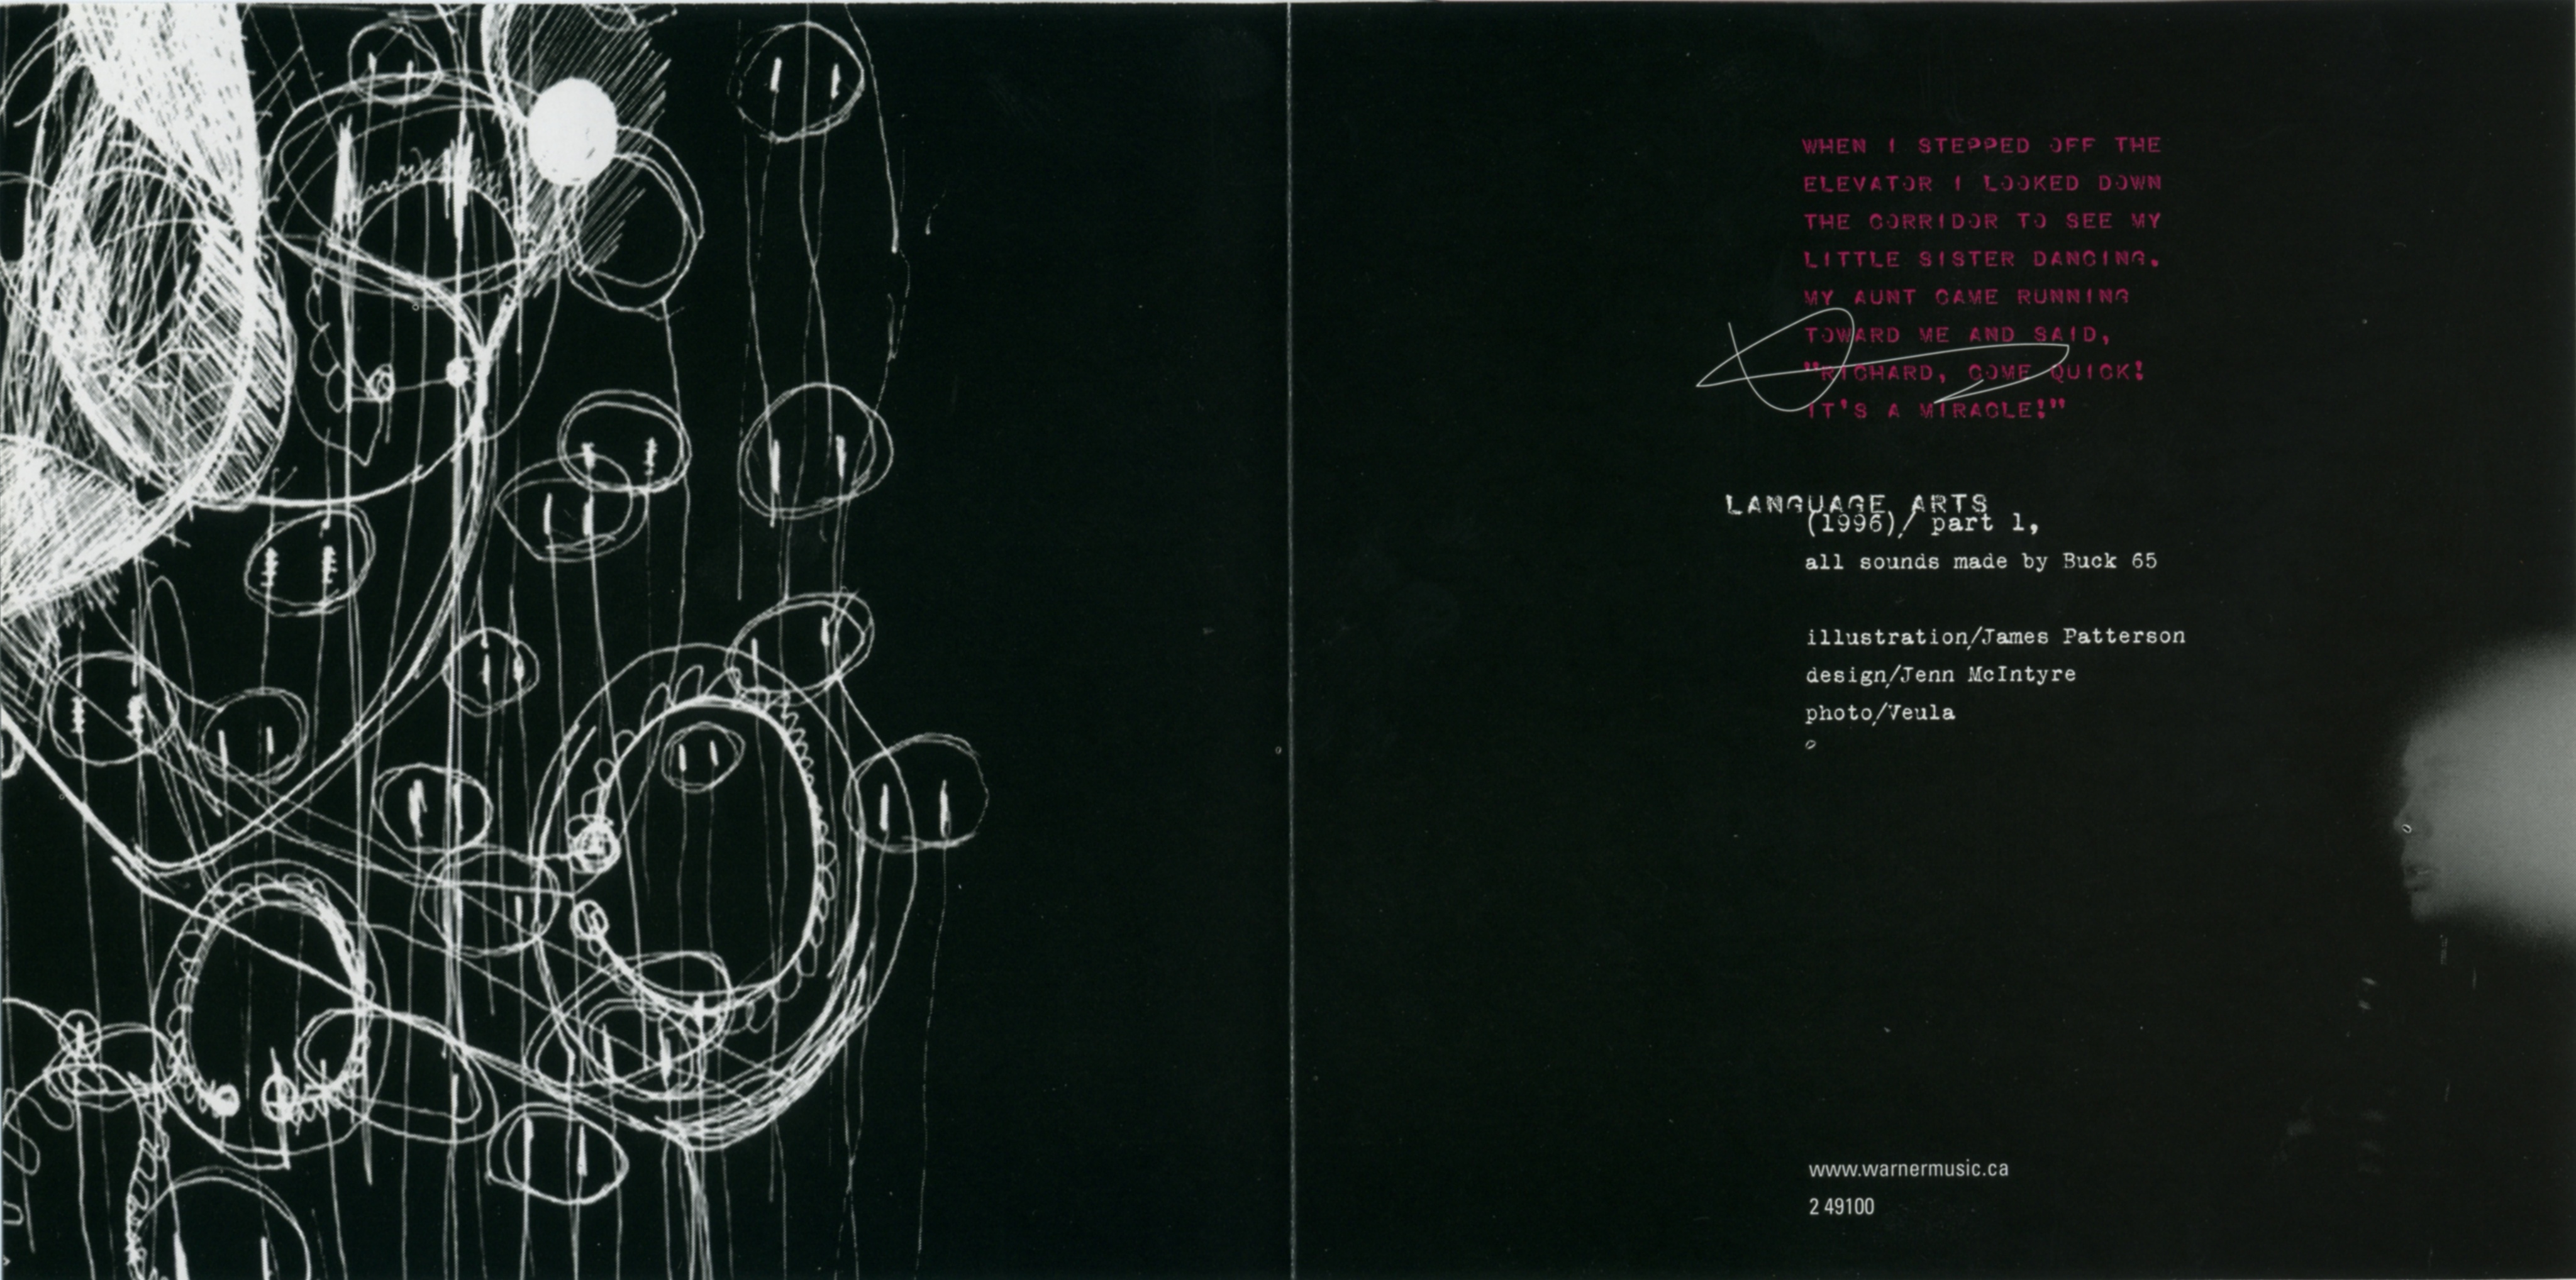 WHEN I STEPPED OFF THE
ELEVATOR I LOOKED DOWN
THE CORRIDOR TO SEE MY
LITTLE SISTER DANCING.
MY AUNT CAME RUNNING
TOWARD ME AND SAID,
"RICHARD, COME QUICK!
IT'S A MIRACLE!"
LANGUAGE ARTS
(1996)/ part 1,
all sounds made by Buck 65
illustration/James Patterson
design/Jenn McIntyre
photo/Veula
www.warnermusic.ca
2 49100